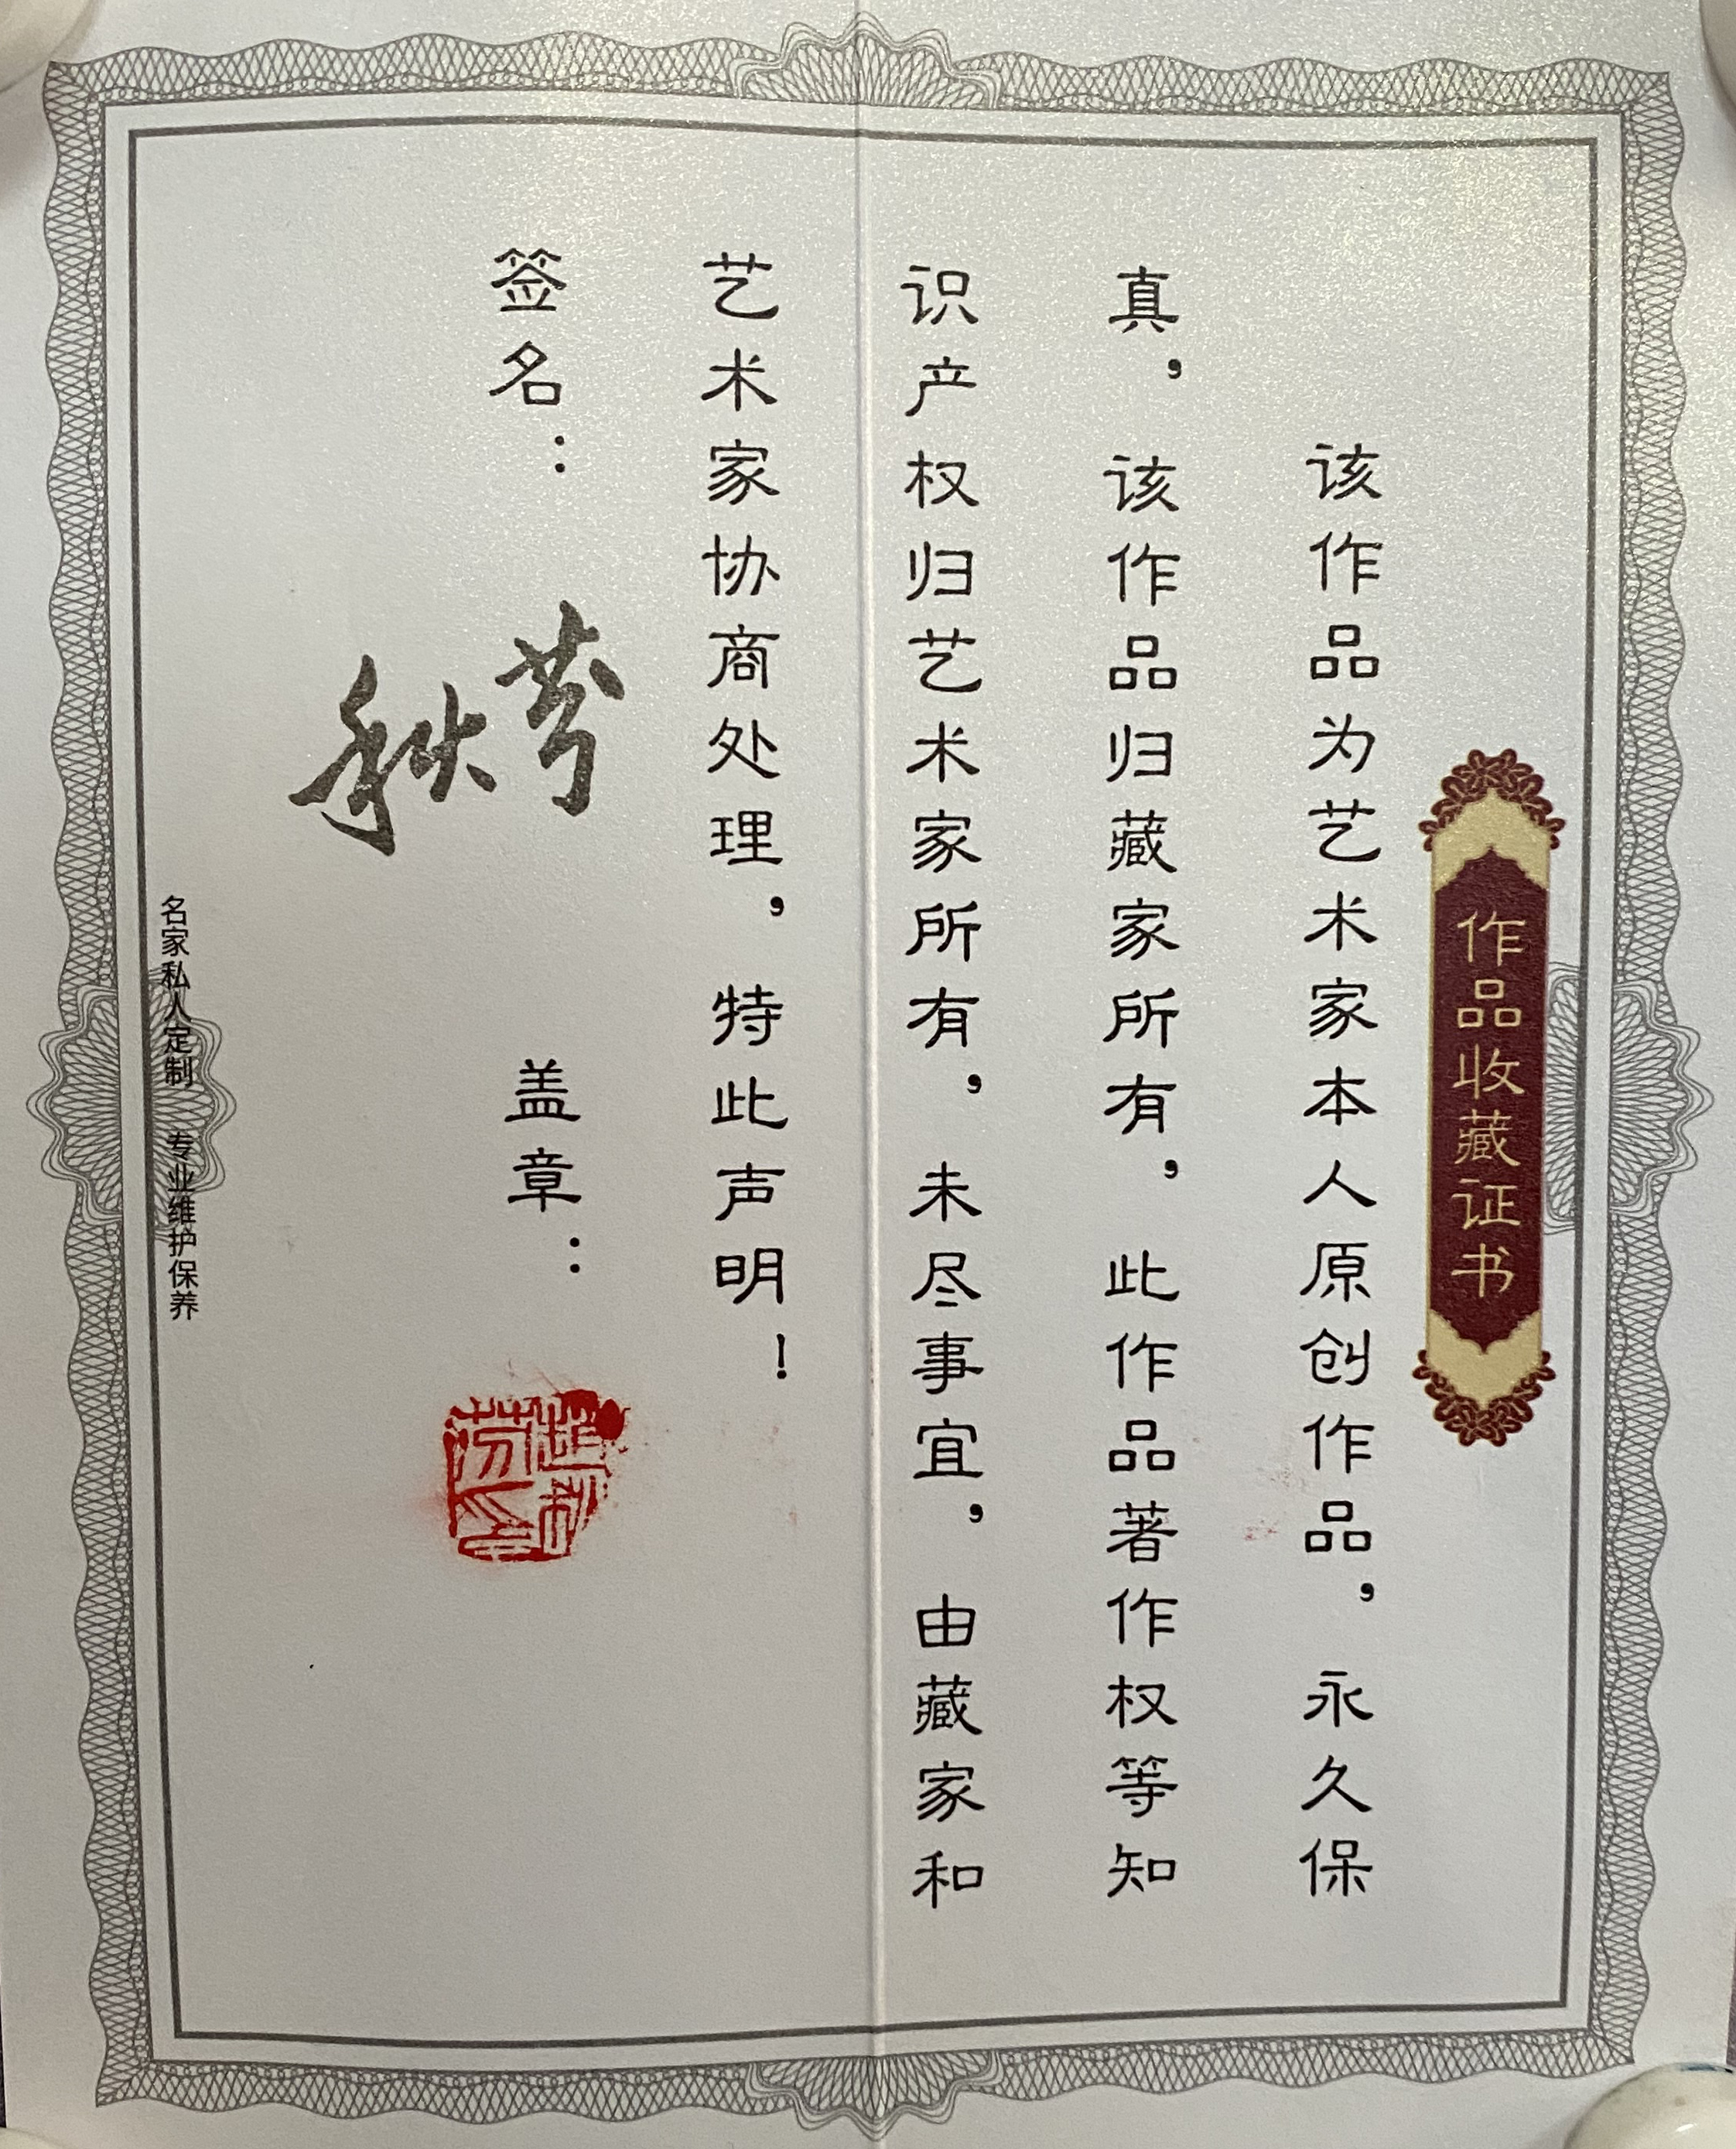 作品收藏证书
该作品为艺术家本人原创作品，永久保
真，该作品归藏家所有，此作品著作权等知
识产权归艺术家所有，未尽事宜，由藏家和
艺术家协商处理，特此声明！
签名：
盖章：
名家私人定制 专业维护保养